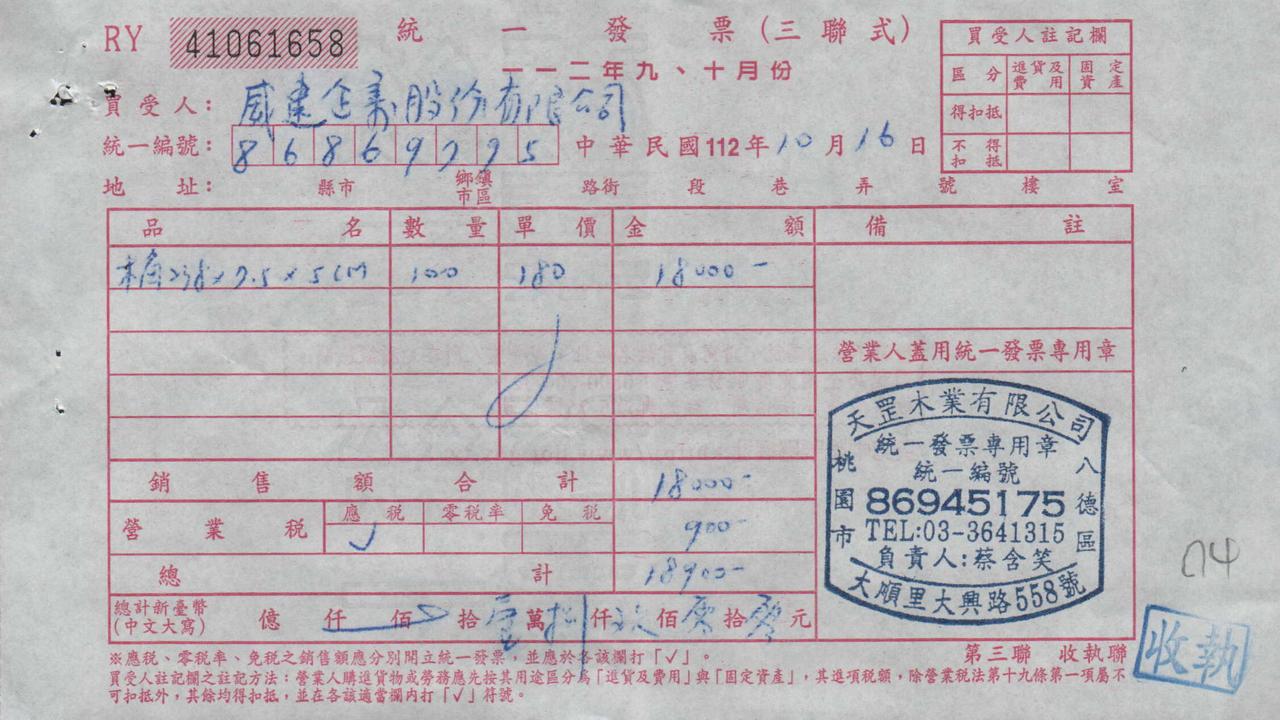 RY 41061658 統一發票(三聯式)
一一二年九、十月份
買受人註記欄
區分 進貨及費用 固定資產
得扣抵
不得扣抵
買受人: 威建企業股份有限公司
統一編號: 86869795 中華民國112年10月16日
地址: 縣市 鄉鎮市區 路街 段 巷 弄 號 樓 室
品名 數量 單價 金額 備註
×7.5×5CM 100 180 18000-
營業人蓋用統一發票專用章
銷售額合計 18000-
營業稅 應稅 零稅率 免稅 900-
✓
總計 18900-
總計新臺幣(中文大寫) 億 仟 佰 拾 壹 萬 捌 仟 玖 佰 零 拾 零 元
天罡木業有限公司
統一發票專用章
統一編號
86945175
TEL:03-3641315
負責人:蔡含笑
桃園市 八德區
大順里大興路558號
※應稅、零稅率、免稅之銷售額應分別開立統一發票,並應於各該欄打「✓」。
第三聯 收執聯
買受人註記欄之註記方法:營業人購進貨物或勞務應先按其用途區分為「進貨及費用」與「固定資產」,其進項稅額,除營業稅法第十九條第一項屬不
可扣抵外,其餘均得扣抵,並在各該適當欄內打「✓」符號。
收執